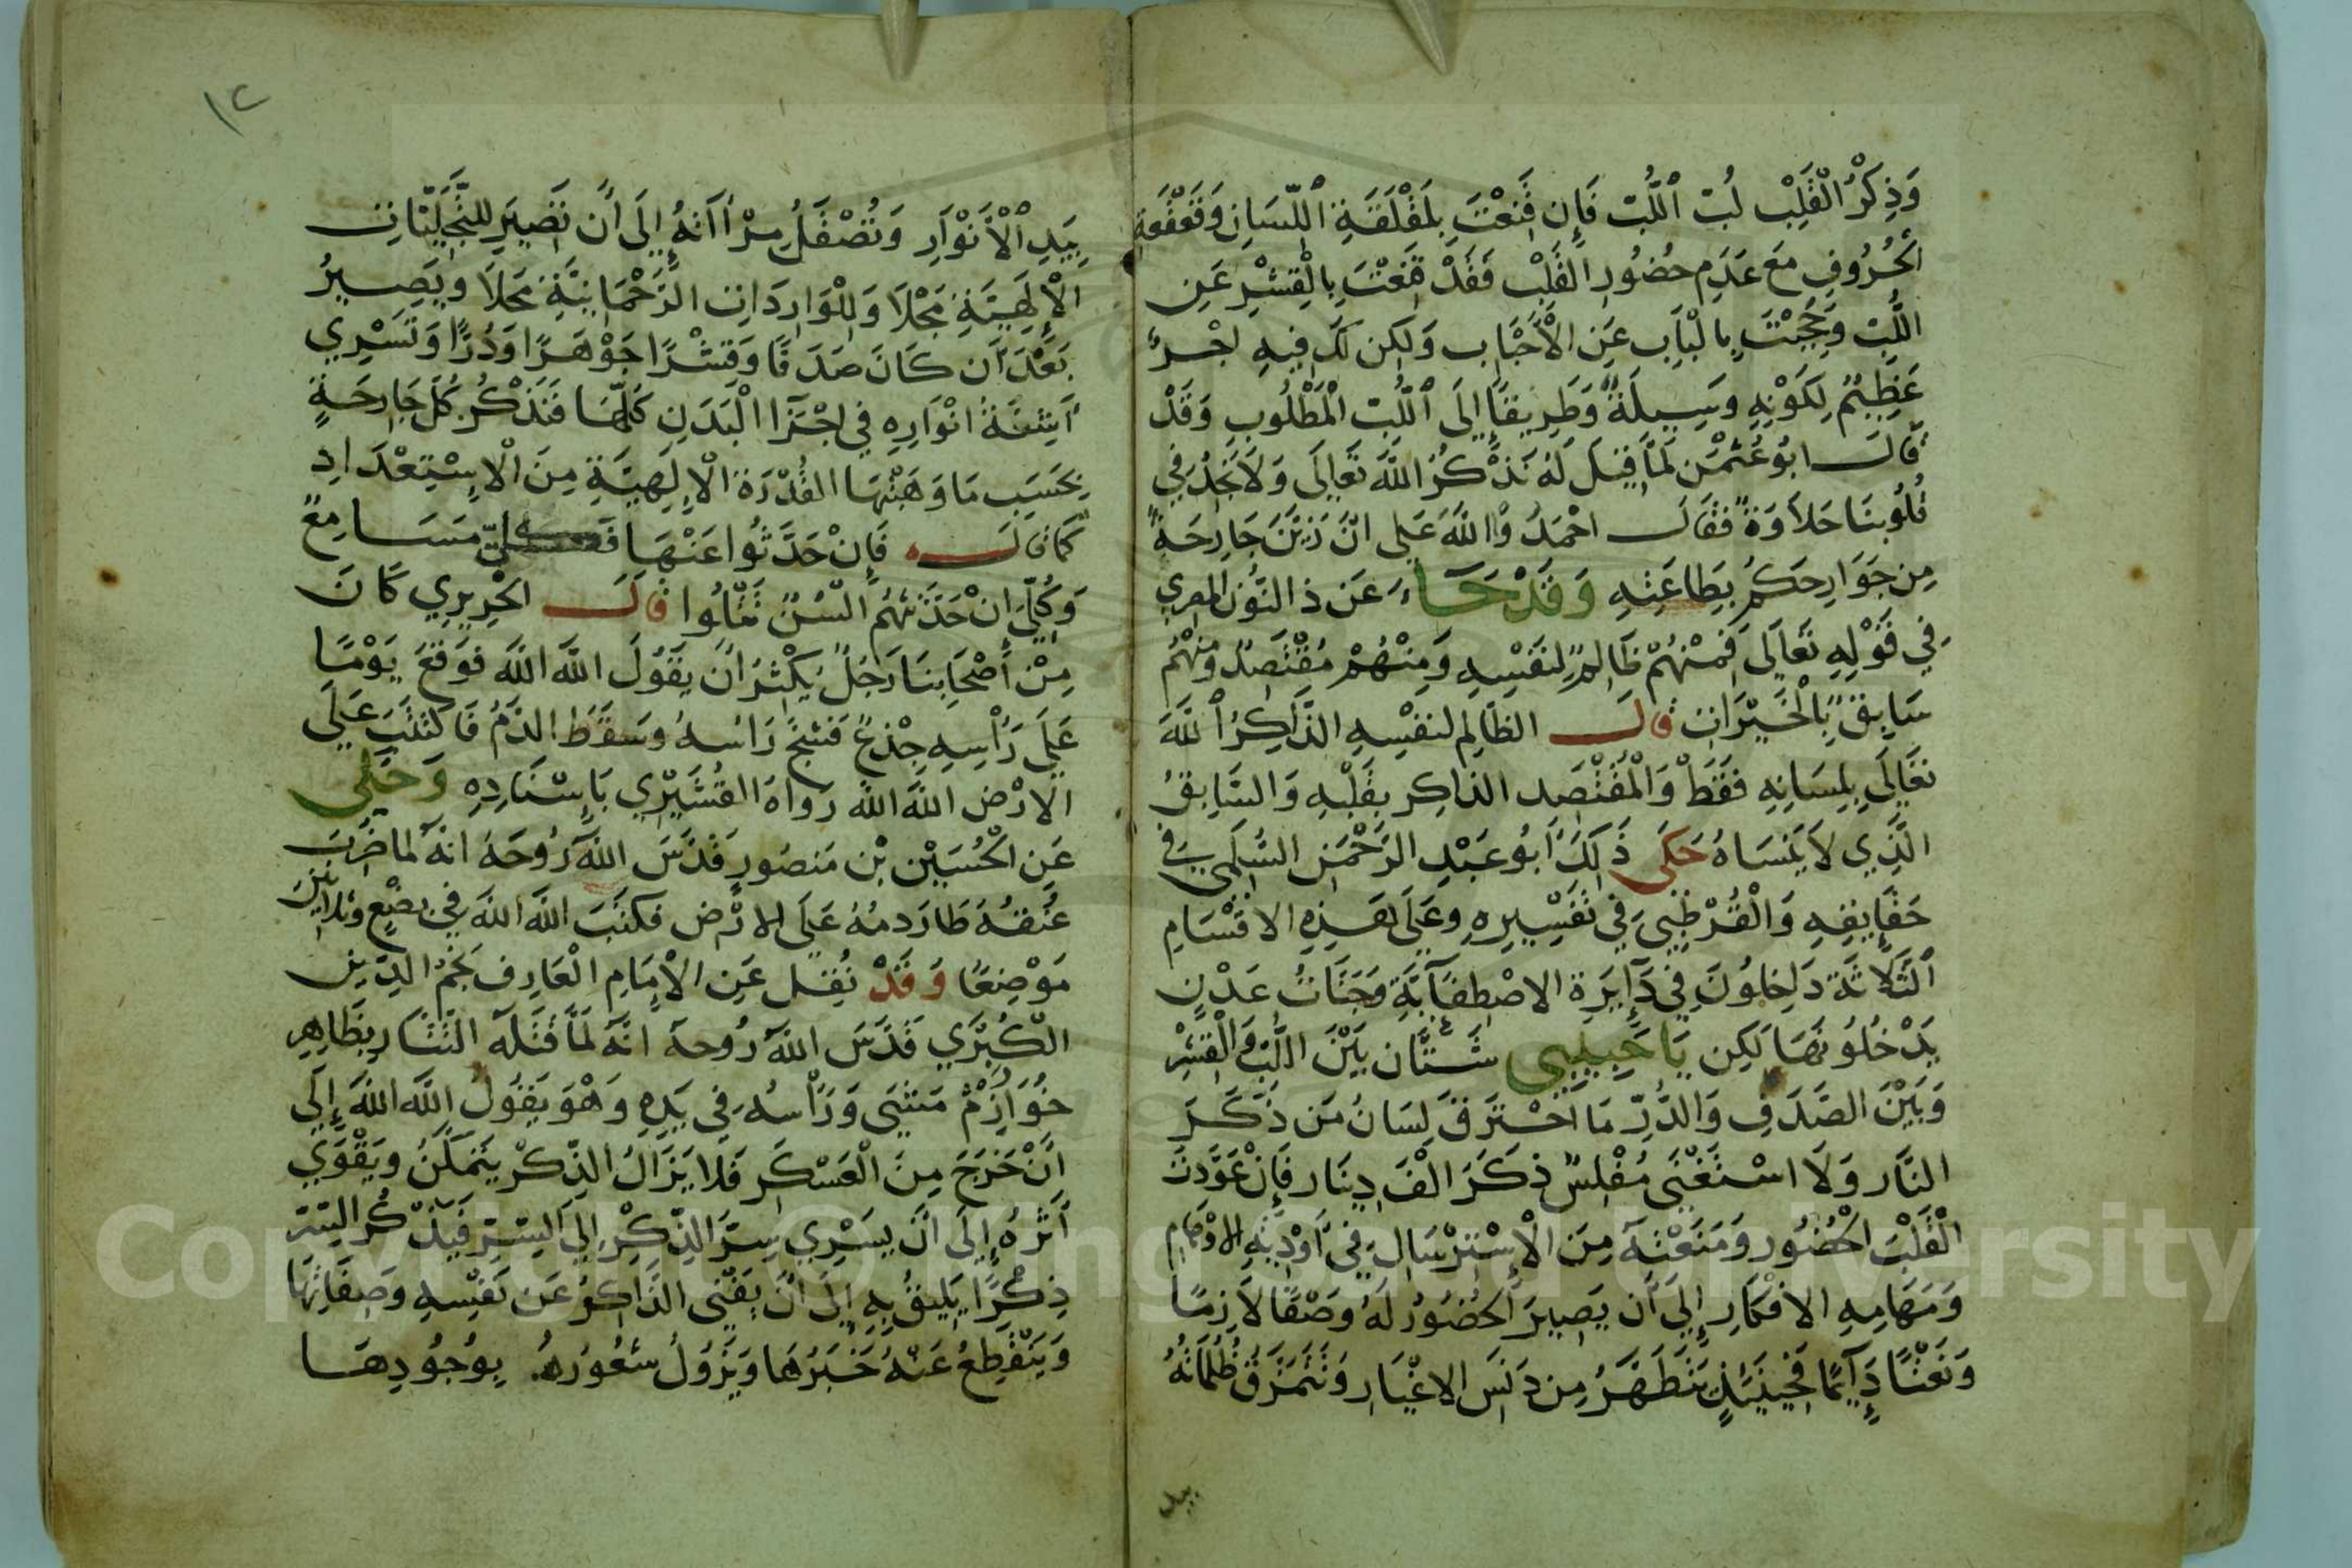 وَذِكْرُ الْقَلْبِ لُبّ ٱللُّبّ فَإِن قَنِعْتَ بِلَقْلَقَةِ اللِّسَانِ وَقَعْقَعَةِ
الْحُرُوفِ مَعَ عَدَمِ حُضُورِ القَلْبِ فَقَدْ قَنَعْتَ بِالْقِشْرِ عَنِ
اللُّبّ وَحُجِبْتَ بِالْبَابِ عَنِ الْأَحْبَابِ وَلَكِن لَكَ فِيهِ اجْرٌ
عَظِيمٌ لِكَوْنِهِ وَسِيلَةً وَطَرِيقًا إِلَى ٱللُّبّ الْمَطْلُوبِ وَقَدْ
قَالَ ابُو عُثْمٰن لَمَّا قِيلَ لَهُ نَذْكُرُ اللَّهَ تَعَالَى وَلَا نَجِدُ فِي
قُلُوبِنَا حَلَاوَةً فَقَالَ احْمَدُوا اللَّهَ عَلَى انَّ زَيَّنَ جَارِحَةً
مِن جَوَارِحِكُمْ بِطَاعَتِهِ وَقَدْ جَاءَ عَن ذ النُّون المصري
فِي قَوْلِهِ تَعَالَى فَمِنْهُمْ ظَالِمٌ لِنَفْسِهِ وَمِنْهُمْ مُقْتَصِدٌ وَمِنْهُمْ
سَابِقٌ بِالْخَيْرَاتِ قَالَ الظَالِم لنفْسِهِ الذَّاكِرُ ٱللَّهَ
تَعَالَى بِلِسَانِهِ فَقَطْ وَالْمُقْتَصِد الذاكِر بِقَلْبِهِ وَالسَّابِقُ
الَّذِي لَا يَنْسَاهُ حَكَى ذَلِكَ أَبُو عَبْدِ الرَّحْمَنِ السُّلَمِي فِي
حَقَايِقِهِ وَالْقُرْطُبِي فِي تَفْسِيرِهِ وعَلَى هَذِهِ الاقْسَامِ
ٱلثَّلَاثَة دَاخِلُونَ فِي دَآيِرَة الاصْطِفَآيَّةِ وَجَنَّاتُ عَدْنٍ
يَدْخُلُونَهَا لَكِن يَا حَبِيبِي شَتَّان بَيْنَ اللُّبّ وَالْقِشْرِ
وَبَيْنَ الصَّدَفِ وَالدُّرِّ مَا احْتَرَقَ لِسَانُ مَن ذَكَرَ
النَّار وَلَا اسْتَغْنَى مُفْلِسٌ ذَكَرَ الْفَ دِينَار فَإِنْ عَوَّدتَ
الْقَلْبَ الْحُضُور وَمَنَعْتَهُ مِنَ الْإِسْتِرْسَالِ فِي أَوْدِيَةِ الاوْهَامِ
وَمَهَامِهِ الافْكَارِ إِلَى أَن يَصِيرَ الْحُضُورُ لَهُ وَصْفًا لَازِمًا
وَنَعْتًا دَآيِمًا فَحِينَئِذٍ يَتَطَهَّرُ مِن دَنَسِ الاغْيَارِ وَتَتَمَزَّق ظُلُمَاتُهُ
بيد
١٢
بِيَدِ ٱلْأَنْوَارِ وَتُصْقَلُ مِرْأَاتهُ إِلَى أَن تَصِيرَ لِلتَّجَلِّيَاتِ
الْإِلَهِيَّةِ مَجْلَا وَلِلْوَارِدَاتِ الرَّحْمَانِيَّةِ مَحَلًا وَيَصِيرُ
بَعْدَ أَن كَانَ صَدَفًا وَقِشْرًا جَوْهَرًا وَدُرًّا وَتَسْرِي
أَشِعَّةُ انْوَارِهِ فِي اجْزَآ الْبَدَنِ كُلِّهَا فَتَذْكُرُ كُلّ جَارِحَةٍ
بِحَسَبِ مَا وَهَبَتْهَا القُدْرَة الْإِلَهِيَّةِ مِنَ الْإِسْتِعْدَادِ
كَمَا قَالَ فَإِنْ حَدَّثُوا عَنْهَا فَكُلِّي مَسَامِعٌ
وَكُلِّي إِنْ حَدَّثتُهُمُ الْسُنٌ تَتْلُوا قَالَ الْجِرِيرِي كَانَ
مِنْ أَصْحَابِنَا رَجُلٌ يُكْثِرُ انْ يَقُولَ اللَّه اللَّه فَوَقَعَ يَوْمًا
عَلَى رَأْسِهِ جِذْعٌ فَشَجَّ رَاسهُ وَسَقَطَ الدَّمُ فَاكْتَتَبَ عَلَى
الارْضِ اللَّه اللَّه رَوَاهُ القُشَيْرِي بَإِسْنَادِهِ وَحَكَى
عَن الْحُسَيْنِ بْن مَنصُورٍ قَدَّسَ اللَّهُ رُوحَهُ انهُ لما ضُرِبَتْ
عُنُقهُ طَارَ دمُهُ عَلَى الارْضِ فكتَبَ اللَّه اللَّه فِي بِضْعٍ وثلاثين
مَوْضِعًا وَقَدْ نُقِلَ عَنِ الْإِمَامِ الْعَارِف نَجْمُ الدِّين
الكُبْرَي قَدَّسَ اللَّهُ رُوحهُ انَّهُ لَمَّا قَتَلَهُ التَّتَار بِظَاهِرِ
خُوَارِزْمْ مَشَى وَرَأْسُهُ فِي يَدِهِ وَهْوَ يَقُولُ اللَّه اللَّه إِلَى
انْ خَرَجَ مِنَ الْعَسْكَرِ فَلَا يَزَالُ الذِّكْر يَتَمَكَّنُ وَيَقْوَي
أَثَرُهُ إِلَى انْ يَسْرِي سِرّ الذِّكْرِ إِلَى السِّرّ فَيَذْكُر السِّرّ
ذِكْرًا يَلِيقُ بِهِ إِلَى انْ يَفْنَى الذَّاكِرُ عَن نَفْسِهِ وَصِفَاتِهَا
وَيَنْقَطِعُ عَنْهُ خَبَرُهَا وَيَزُولُ شُعُورُهُ بِوُجُودِهَا